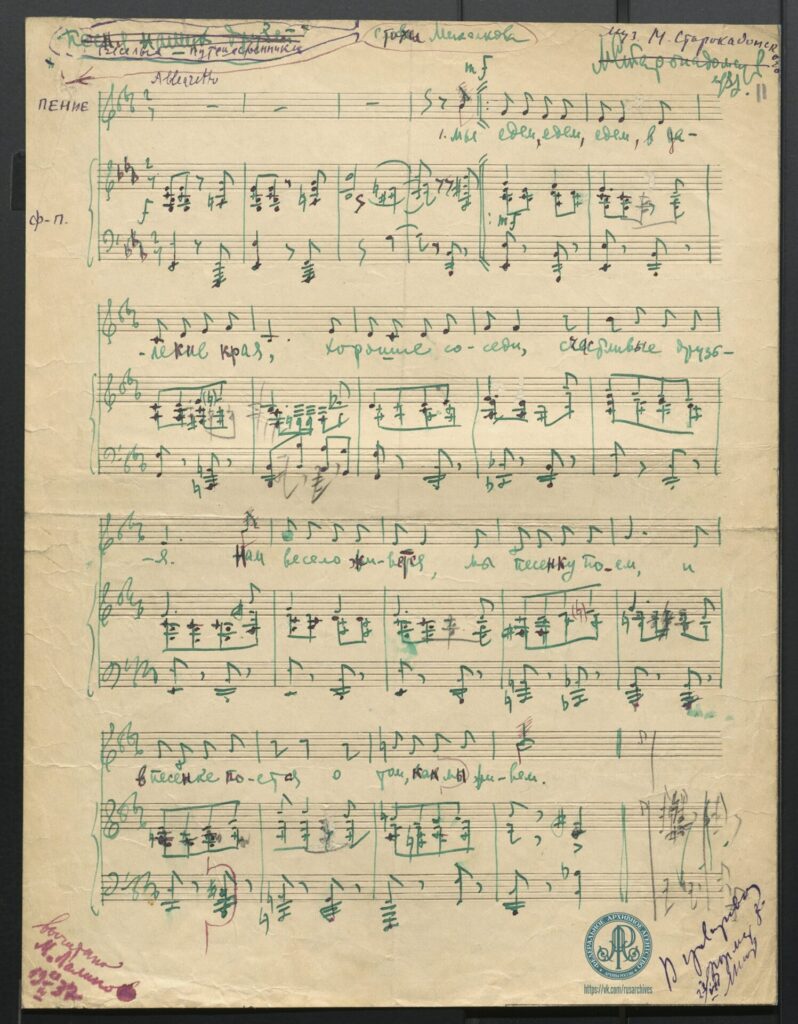 Песня наших друзей
Веселые путешественники
стихи Михалкова
муз. М. Старокадомского
М. Старокадомский
Allegretto
ПЕНИЕ
mf
1. Мы едем, едем, едем, в да-
Ф-П.
f
mf
-лекие края, хорошие со-седи, счастливые друзь-
-я. Нам весело жи-вется, мы песенку по-ем, и
в песенке по-ется о том, как мы жи-вем.
ФЕДЕРАЛЬНОЕ АРХИВНОЕ АГЕНТСТВО
https://vk.com/rusarchives